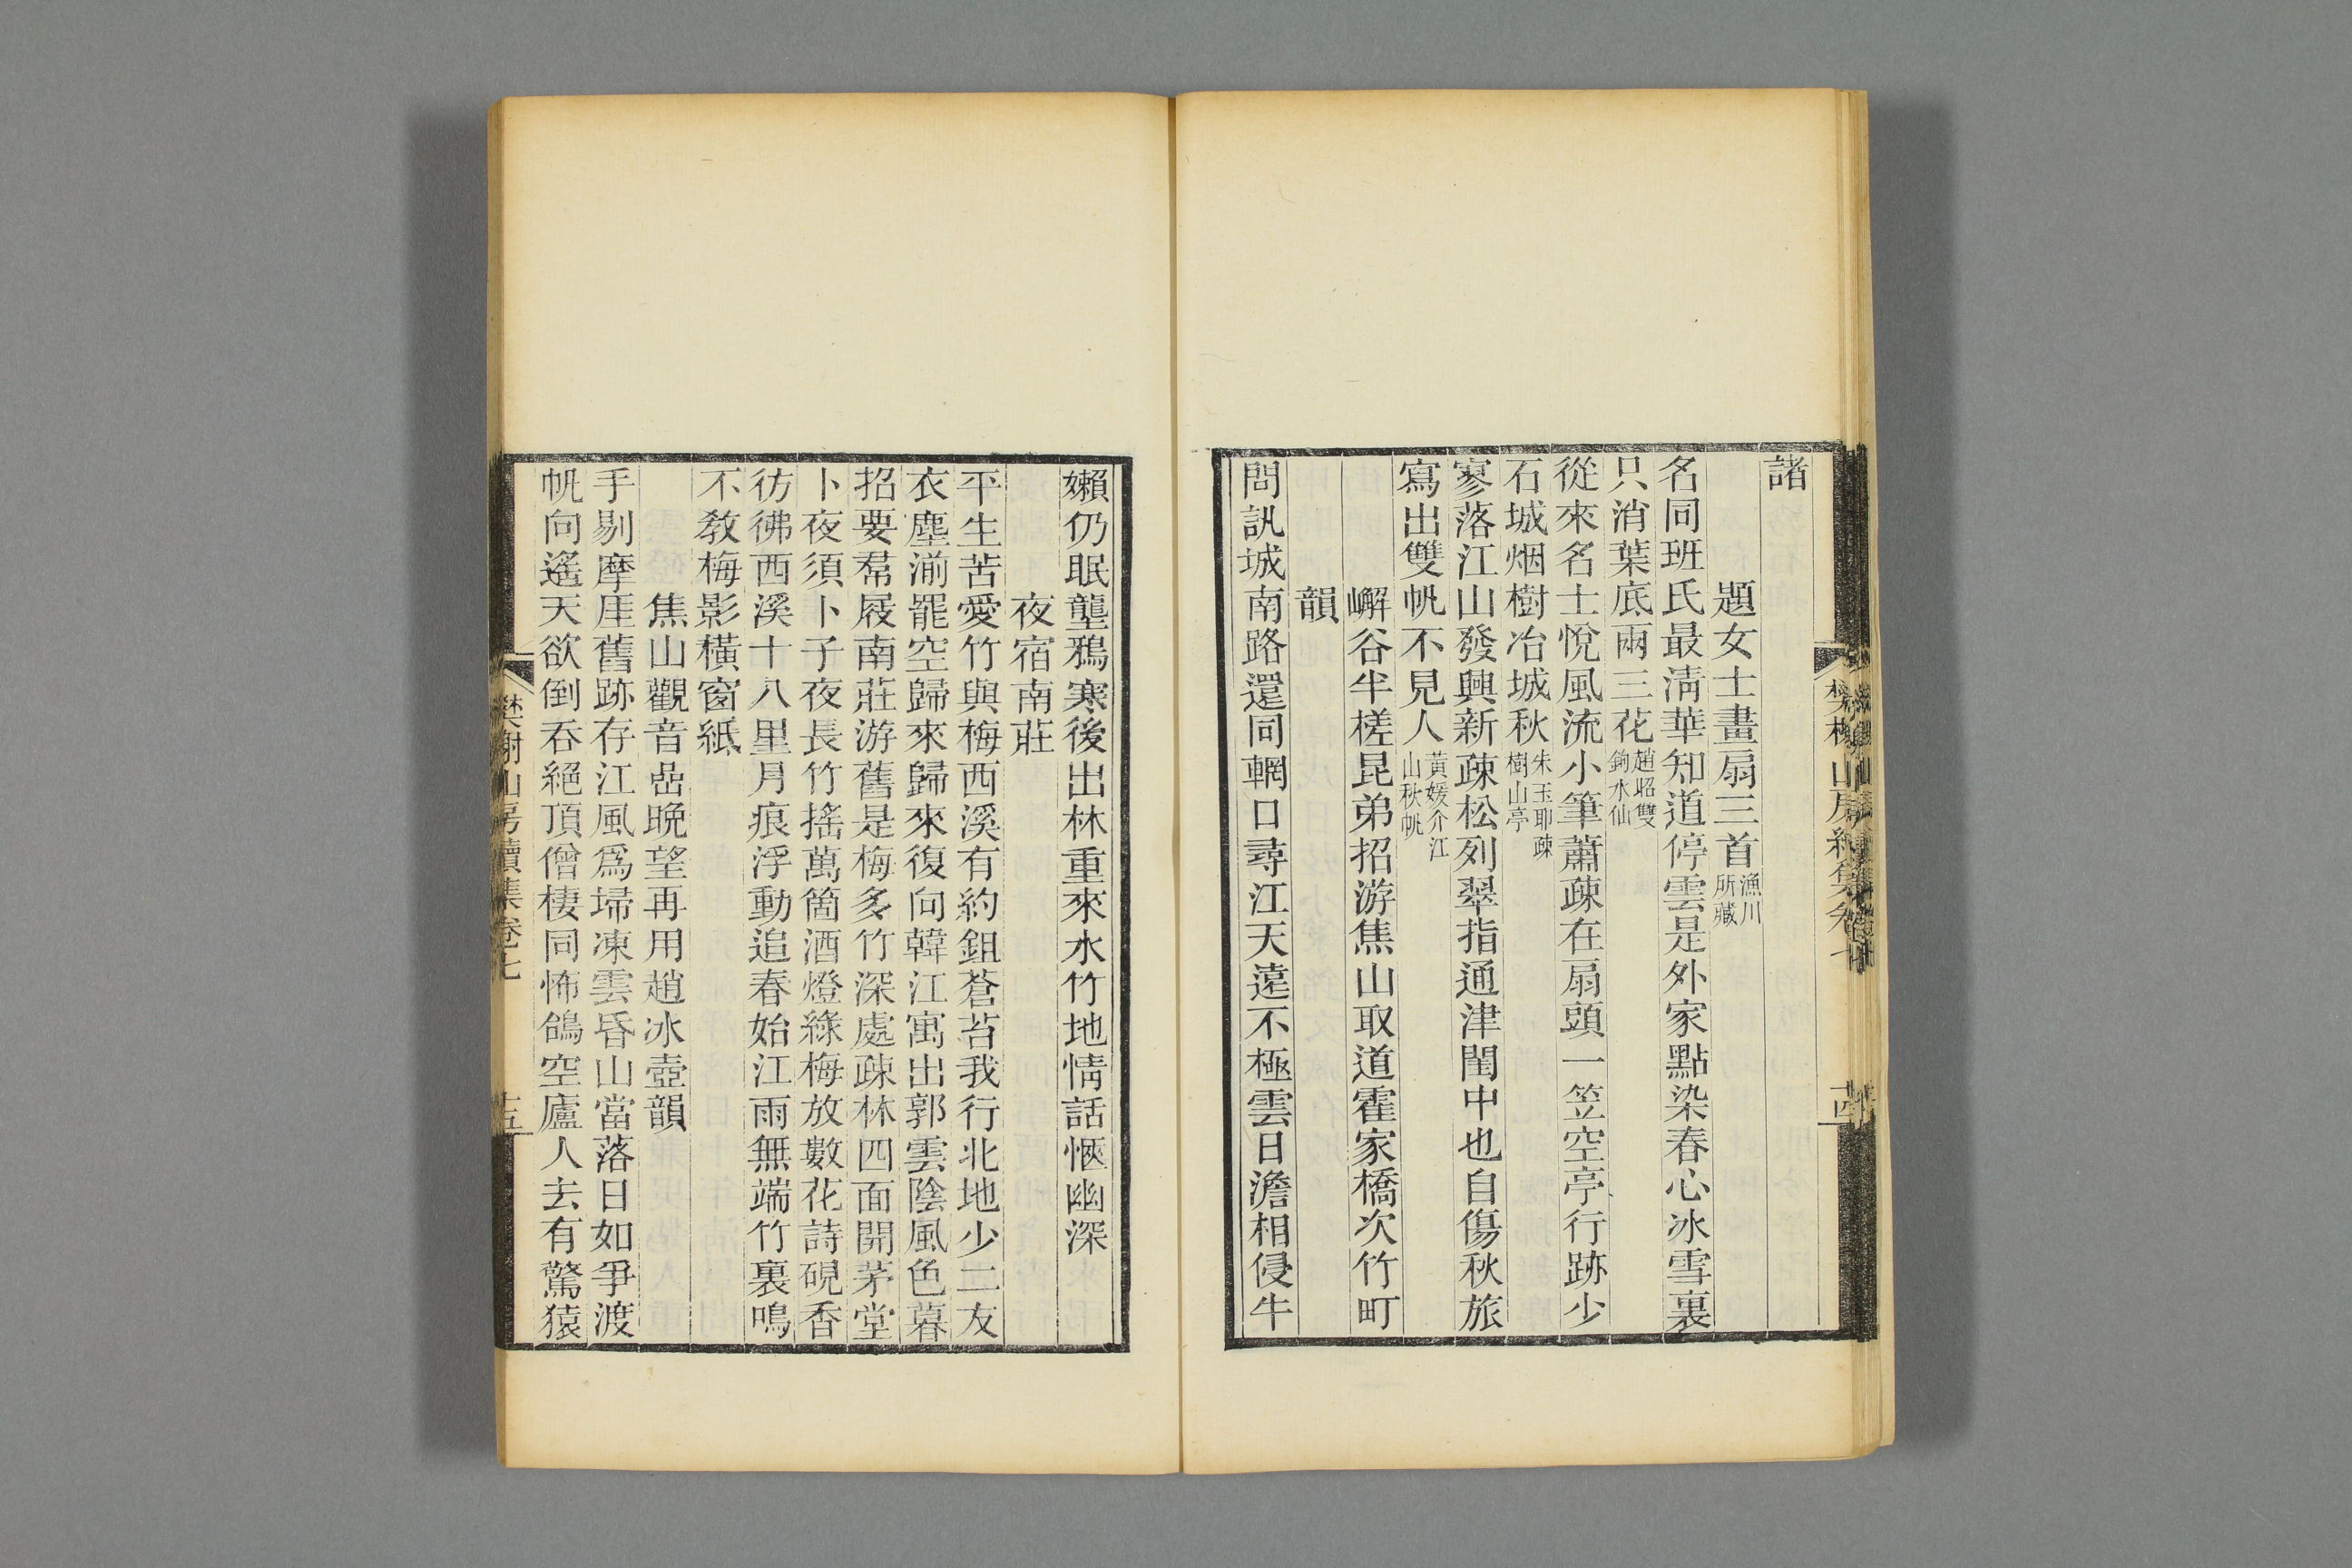 諸
題女士畫扇三首漁川所藏
名同班氏最淸華知道停雲是外家點染春心冰雪裏
只消葉底兩三花趙昭雙鉤水仙
從來名士悅風流小筆蕭疎在扇頭一笠空亭行跡少
石城烟樹冶城秋朱玉耶疎樹山亭
寥落江山發興新疎松列翠指通津閨中也自傷秋旅
寫出雙帆不見人黃媛介江山秋帆
嶰谷半槎昆弟招游焦山取道霍家橋次竹町
韻
問訊城南路還同輞口尋江天遠不極雲日澹相侵牛
嬾仍眠壟鴉寒後出林重來水竹地情話愜幽深
夜宿南莊
平生苦愛竹與梅西溪有約鉏蒼苔我行北地少二友
衣塵湔罷空歸來歸來復向韓江寓出郭雲陰風色暮
招要帬屐南莊游舊是梅多竹深處疎林四面開茅堂
卜夜須卜子夜長竹搖萬箇酒燈綠梅放數花詩硯香
彷彿西溪十八里月痕浮動追春始江雨無端竹裏鳴
不敎梅影橫窗紙
焦山觀音嵒晩望再用趙冰壺韻
手剔摩厓舊跡存江風爲埽凍雲昏山當落日如爭渡
帆向遙天欲倒吞絕頂僧棲同怖鴿空廬人去有驚猿
樊榭山房續集卷七
十五